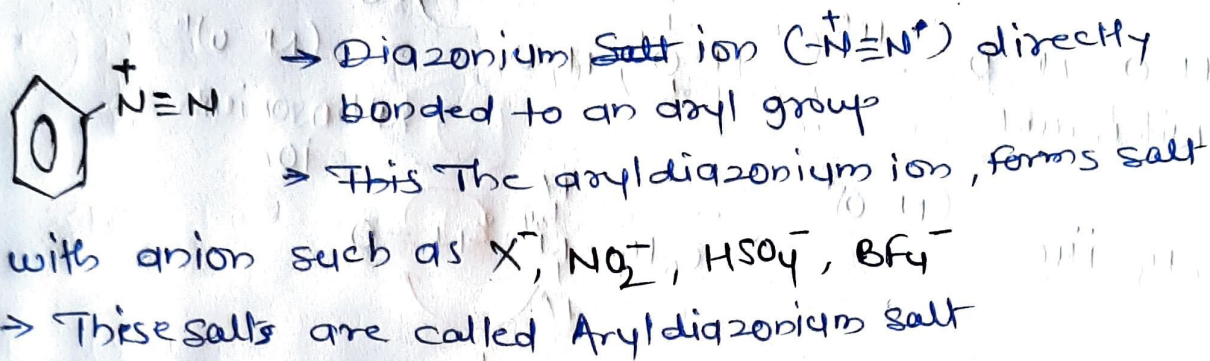 → Diazonium ion (-N⁺≡N) directly
N⁺≡N bonded to an aryl group
→ The aryldiazonium ion, forms salt
with anion such as X⁻, NO₂⁻, HSO₄⁻, BF₄⁻
→ These salts are called Aryldiazonium salt